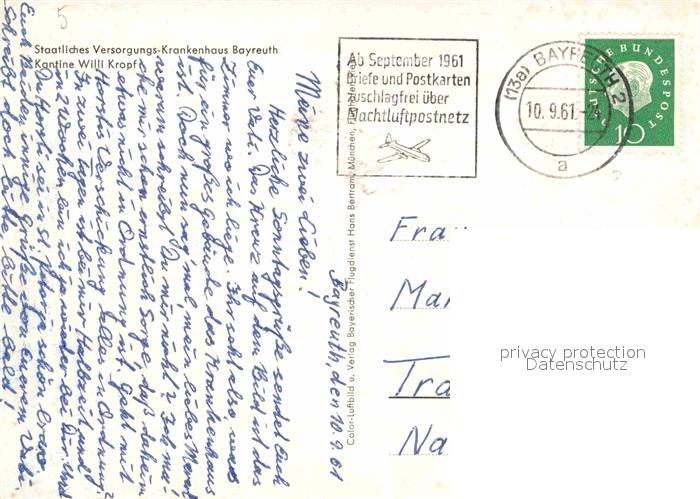 5
Staatliches Versorgungs-Krankenhaus Bayreuth
Kantine Willi Kropf
Ab September 1961
Briefe und Postkarten
zuschlagfrei über
Nachtluftpostnetz
(13a) BAYREUTH 2
10.9.61.-24
a
DEUTSCHE BUNDESPOST
10
Color-Luftbild u. Verlag Bayerischer Flugdienst Hans Bertram, München, Flughafen
Bayreuth, den 10.9.61
Meine zwei Lieben!
Herzliche Sonntagsgrüße sendet Euch
Euer Vati. Das Kreuz auf dem Bild ist das
Zimmer wo ich liege. Ihr seht also, was
für ein großes Gebäude das Krankenhaus
ist. Doch nun sag mal, mein liebes
warum schreibst Du mir nicht? Ich
mir schon ernstlich Sorge, daß daheim
etwas nicht in Ordnung ist. Geht mit
Horsts Verschickung alles in Ordnung?
In zwei Tagen ist bei mir Halbzeit und
in 2 Wochen bin ich ja wieder bei Dir. Und
Horsti sei schön brav.
Euch beiden innige Grüße von Eurem Vati.
Schreibt doch bitte, bitte bald!
Fra
Mar
Tra
Na
privacy protection
Datenschutz